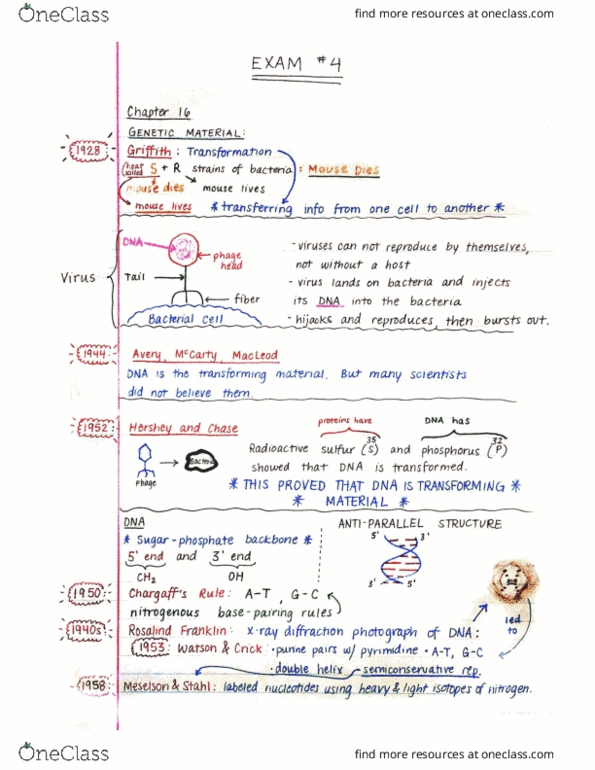 OneClass
find more resources at oneclass.com
EXAM #4
Chapter 16
GENETIC MATERIAL:
1928 Griffith: Transformation
(heat killed) S + R strains of bacteria : Mouse Dies
mouse dies mouse lives
mouse lives * transferring info from one cell to another *
Virus
DNA
phage head
Tail
fiber
Bacterial Cell
- viruses can not reproduce by themselves,
not without a host
- virus lands on bacteria and injects
its DNA into the bacteria
- hijacks and reproduces, then bursts out.
1944: Avery, McCarty, MacLeod
DNA is the transforming material. But many scientists
did not believe them.
1952: Hershey and Chase
proteins have DNA has
Radioactive sulfur (35S) and phosphorus (32P)
showed that DNA is transformed.
phage
Bacteria
* THIS PROVED THAT DNA IS TRANSFORMING *
* MATERIAL *
DNA
* Sugar-phosphate backbone *
5' end and 3' end
CH2 OH
ANTI-PARALLEL STRUCTURE
5' 3'
3' 5'
1950: Chargaff's Rule: A-T, G-C
nitrogenous base-pairing rules
1940s: Rosalind Franklin: x-ray diffraction photograph of DNA:
led to
1953: Watson & Crick: • purine pairs w/ pyrimidine • A-T, G-C
• double helix semiconservative rep.
1958 Meselson & Stahl: labeled nucleotides using heavy & light isotopes of nitrogen.
OneClass
find more resources at oneclass.com